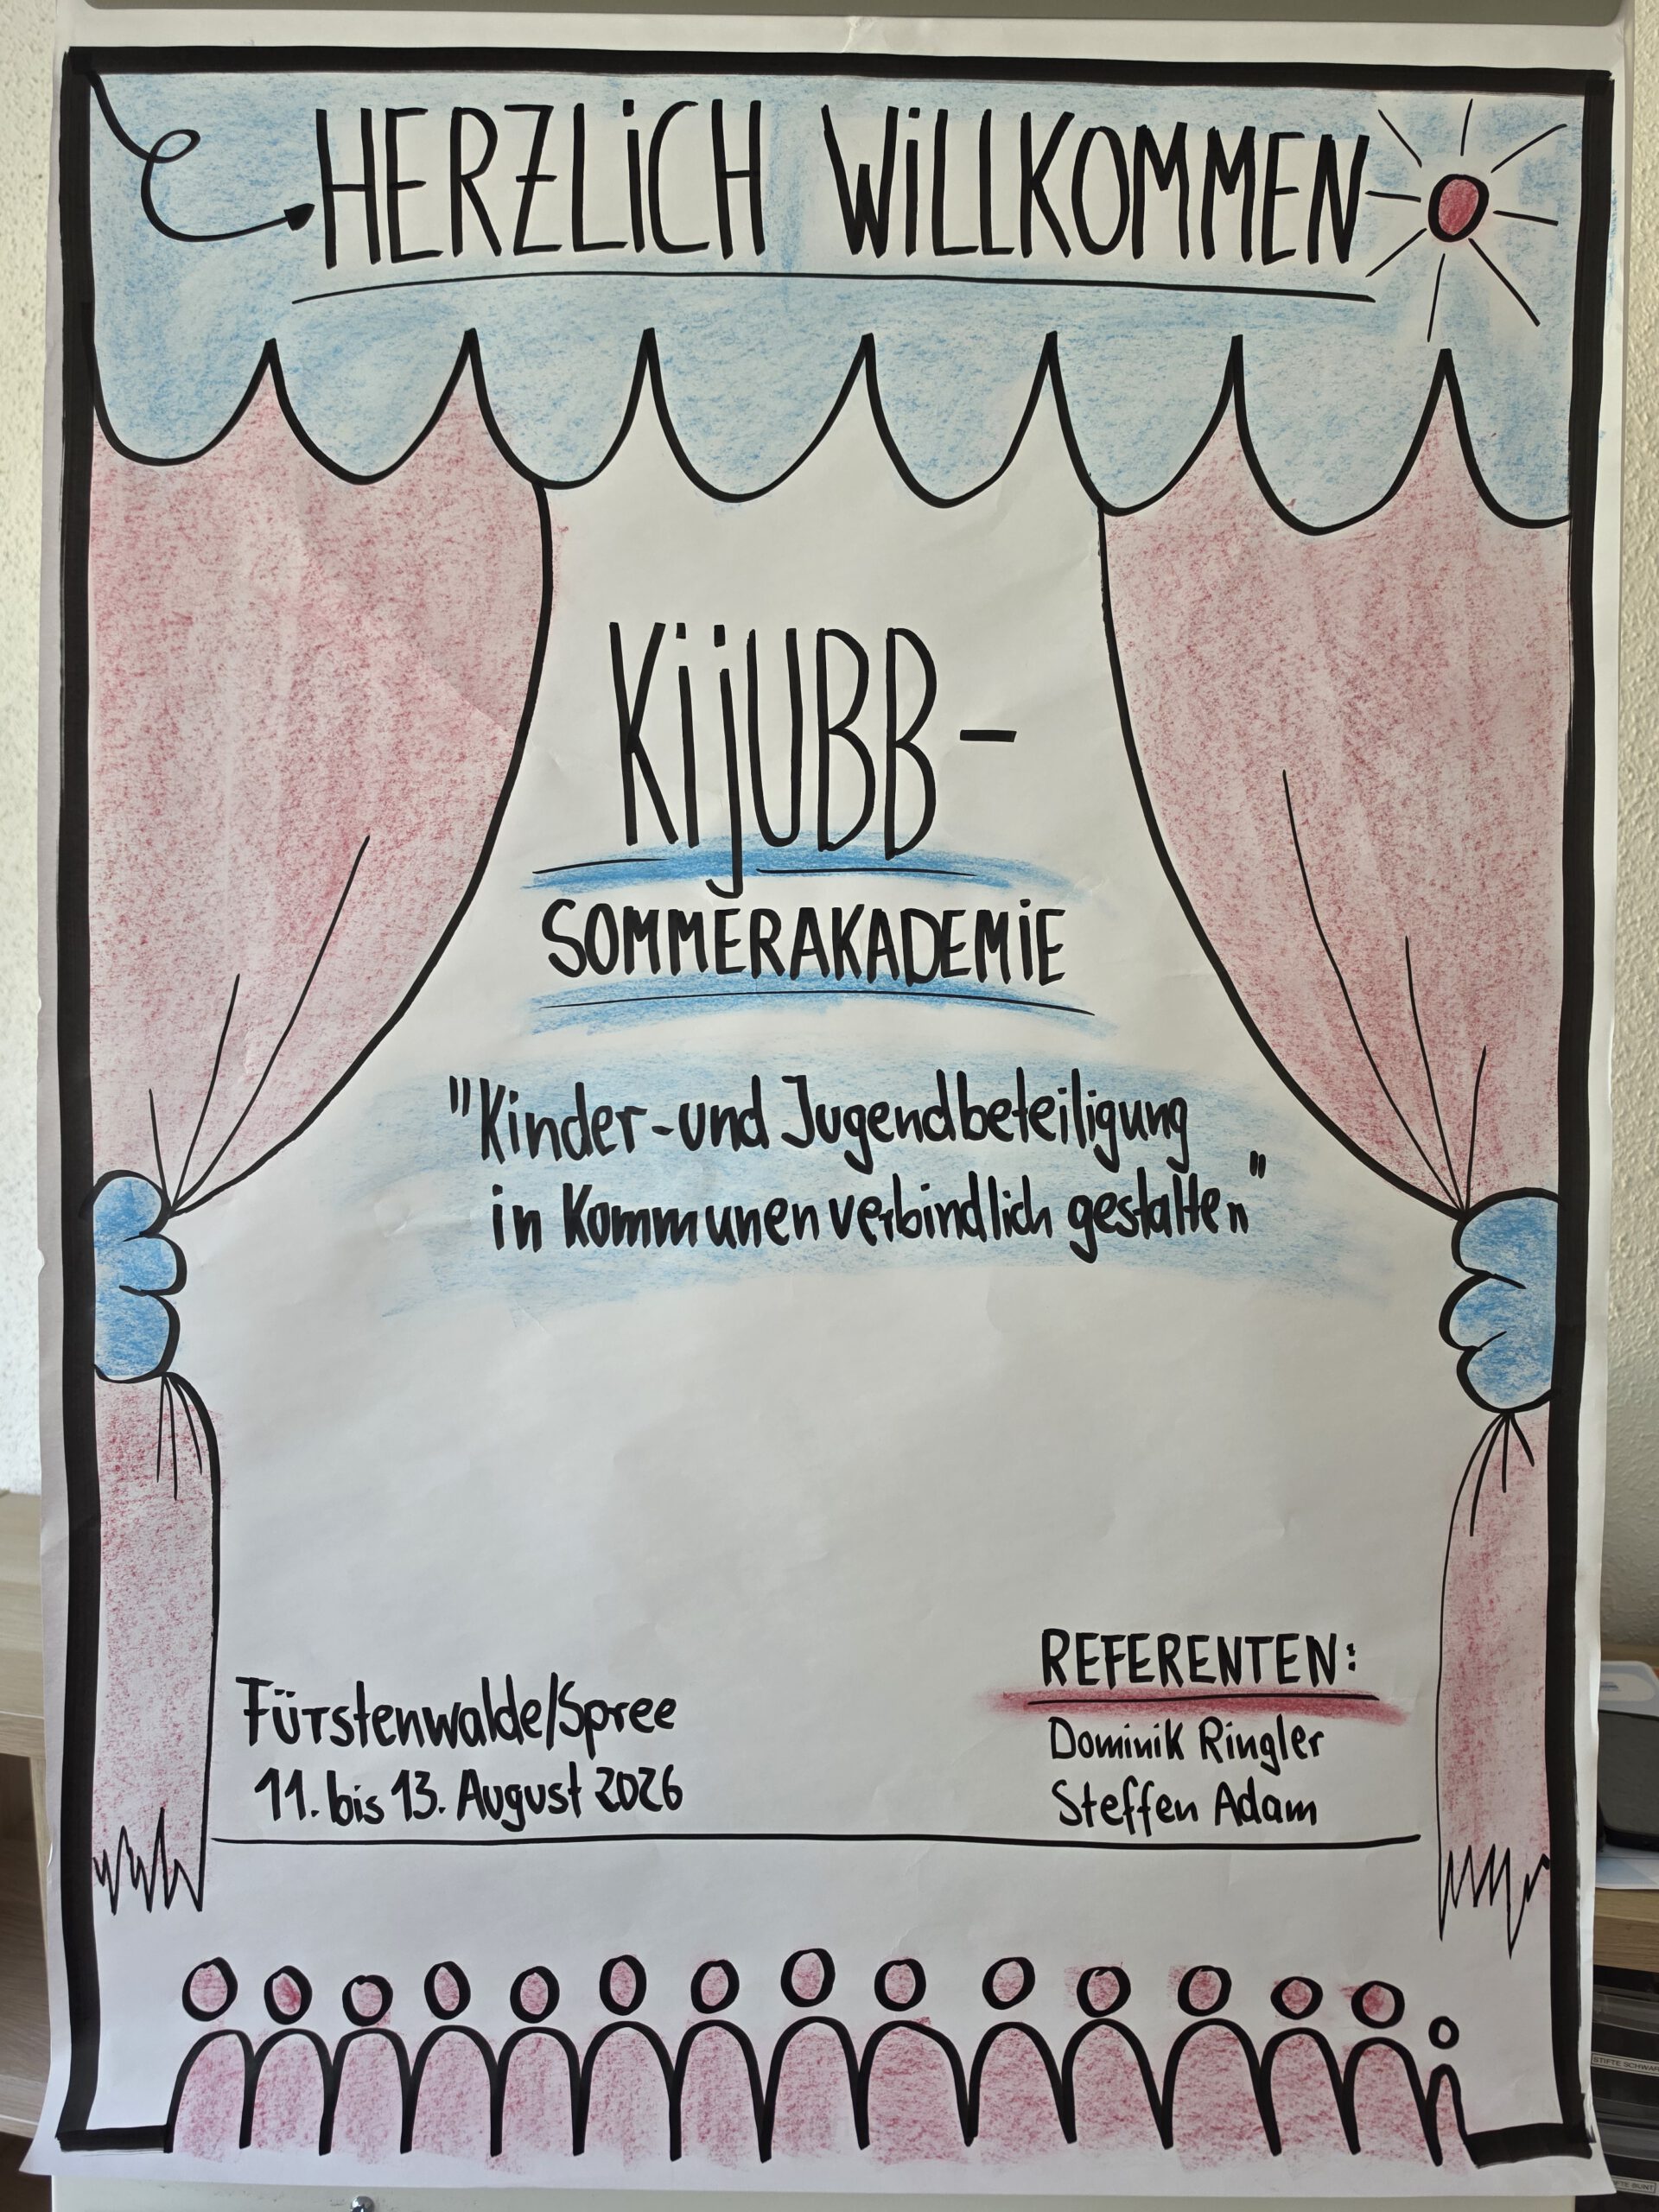 HERZLiCH WiLLKOMMEN
KijUBB-
SOMMERAKADEMiE
"Kinder- und Jugendbeteiligung
in Kommunen verbindlich gestalten"
Fürstenwalde/Spree
11. bis 13. August 2026
REFERENTEN:
Dominik Ringler
Steffen Adam
STIFTE SCHWAR